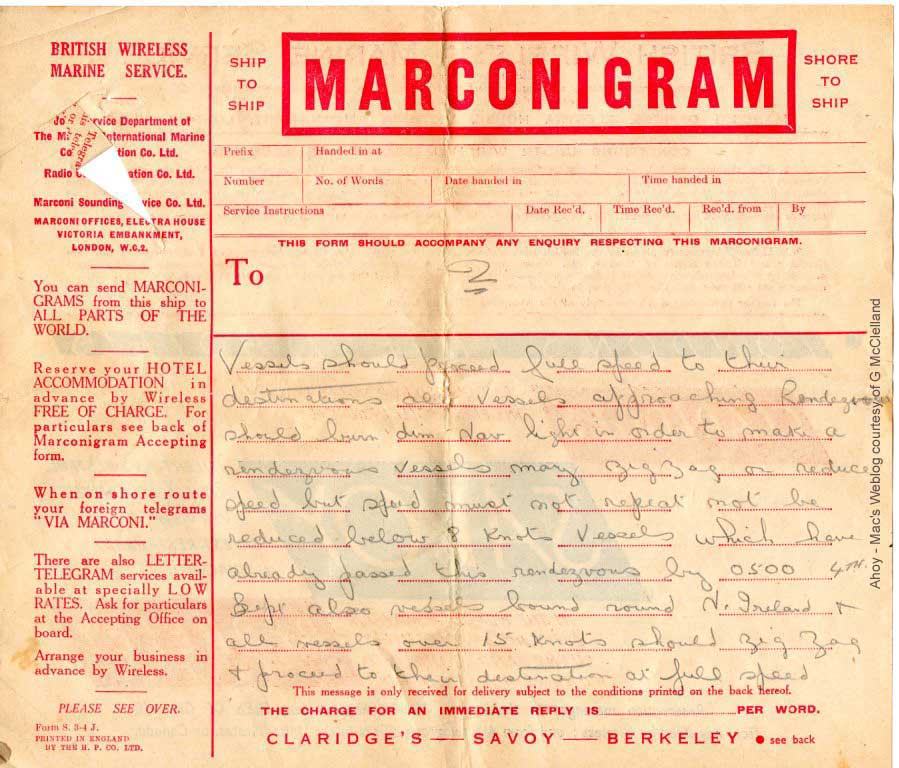 BRITISH WIRELESS
MARINE SERVICE.
Service Department of
The International Marine
Co. Ltd.
Radio Co. Ltd.
Marconi Sounding Co. Ltd.
MARCONI OFFICES, ELECTRA HOUSE
VICTORIA EMBANKMENT,
LONDON, W.C.2.
You can send MARCONI-
GRAMS from this ship to
ALL PARTS OF THE
WORLD.
Reserve your HOTEL
ACCOMMODATION in
advance by Wireless
FREE OF CHARGE. For
particulars see back of
Marconigram Accepting
form.
When on shore route
your foreign telegrams
"VIA MARCONI."
There are also LETTER-
TELEGRAM services avail-
able at specially LOW
RATES. Ask for particulars
at the Accepting Office on
board.
Arrange your business in
advance by Wireless.
PLEASE SEE OVER.
Form S. 3-4 J.
PRINTED IN ENGLAND
BY THE H. P. CO. LTD.
SHIP
TO
SHIP
MARCONIGRAM
SHORE
TO
SHIP
Prefix Handed in at
Number No. of Words Date handed in Time handed in
Service Instructions Date Rec'd. Time Rec'd. Rec'd. from By
THIS FORM SHOULD ACCOMPANY ANY ENQUIRY RESPECTING THIS MARCONIGRAM.
To 2
Vessels should proceed full speed to their
destinations all vessels approaching Rendezvous
should burn dim Nav light in order to make a
rendezvous Vessels may zig zag or reduce
speed but speed must not repeat not be
reduced below 8 Knots Vessels which have
already passed this rendezvous by 0500 4TH.
Sept also vessels bound round N. Ireland +
all vessels over 15 Knots should zig zag
+ proceed to their destination at full speed
This message is only received for delivery subject to the conditions printed on the back hereof.
THE CHARGE FOR AN IMMEDIATE REPLY IS PER WORD.
CLARIDGE'S — SAVOY — BERKELEY ● see back
Ahoy - Mac's Weblog courtesy of G McClelland